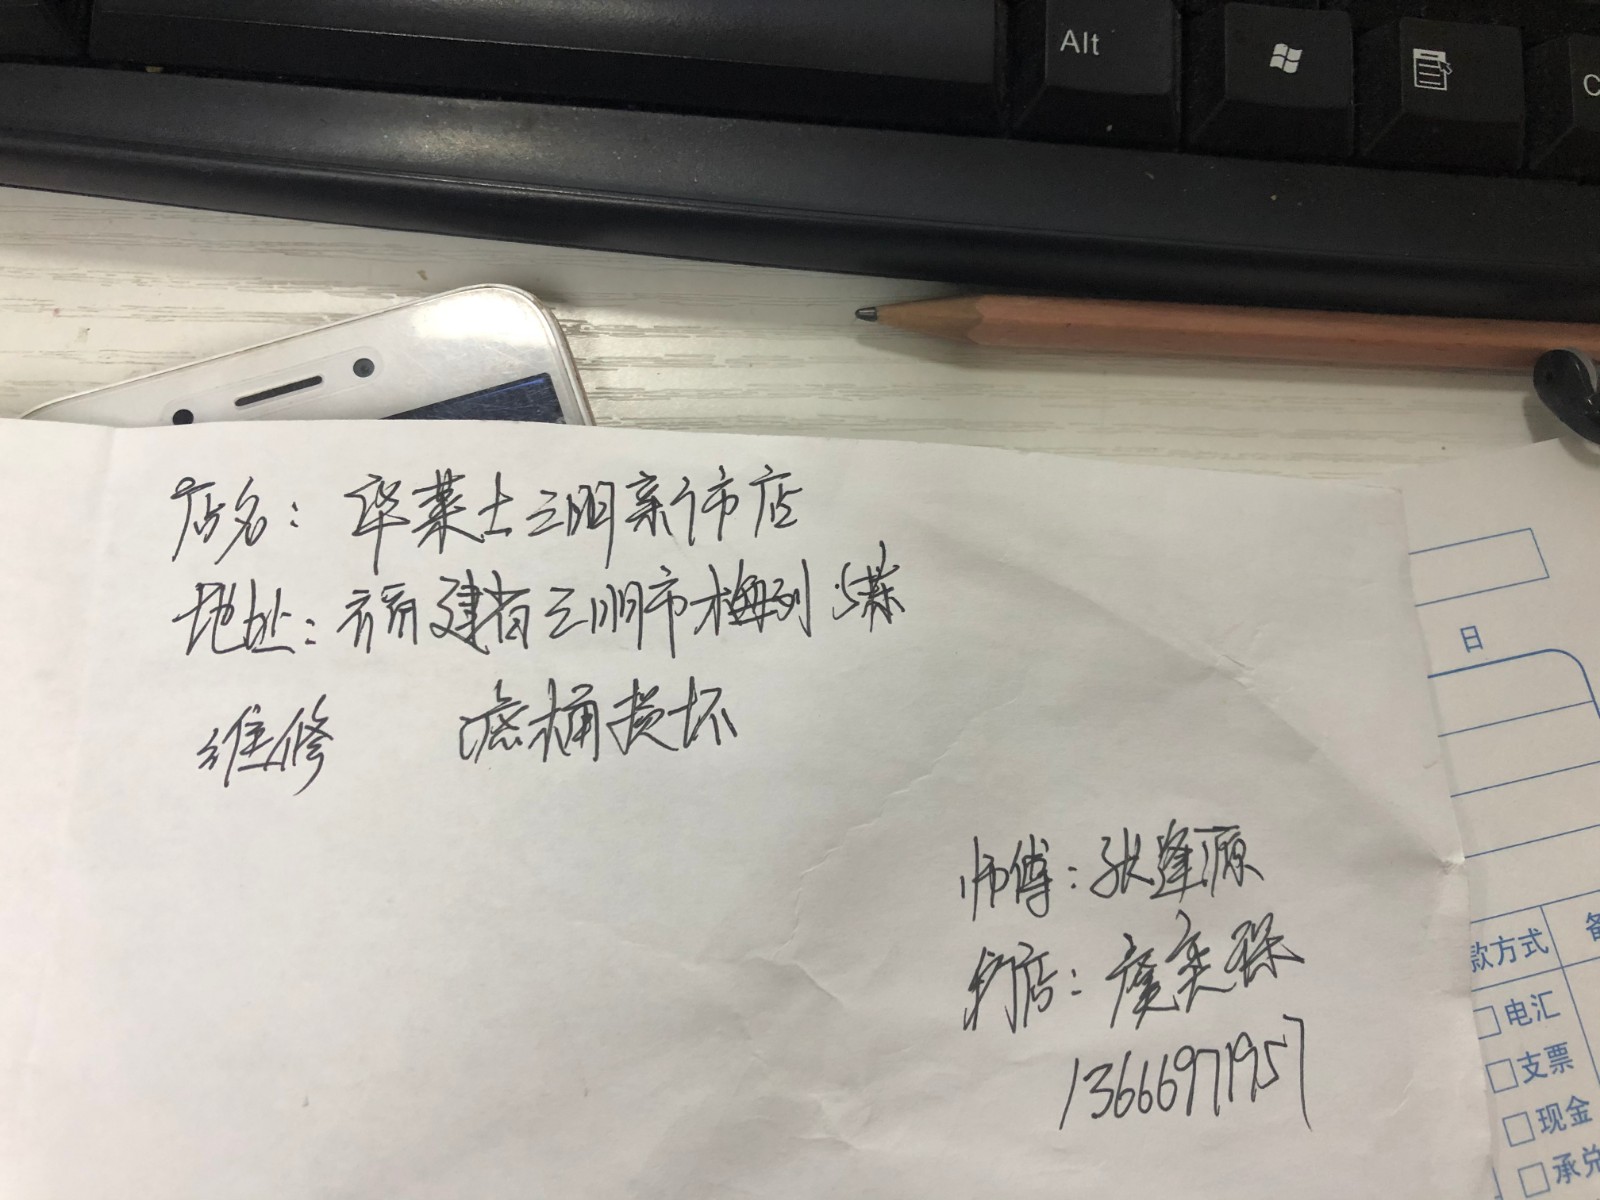 Alt
店名：毕莱士三明新市店
地址：福建省三明市梅列
维修 滤桶损坏
师傅：张逢源
门店：虞美珠
13666971957
日
款方式 备
电汇
支票
现金
承兑